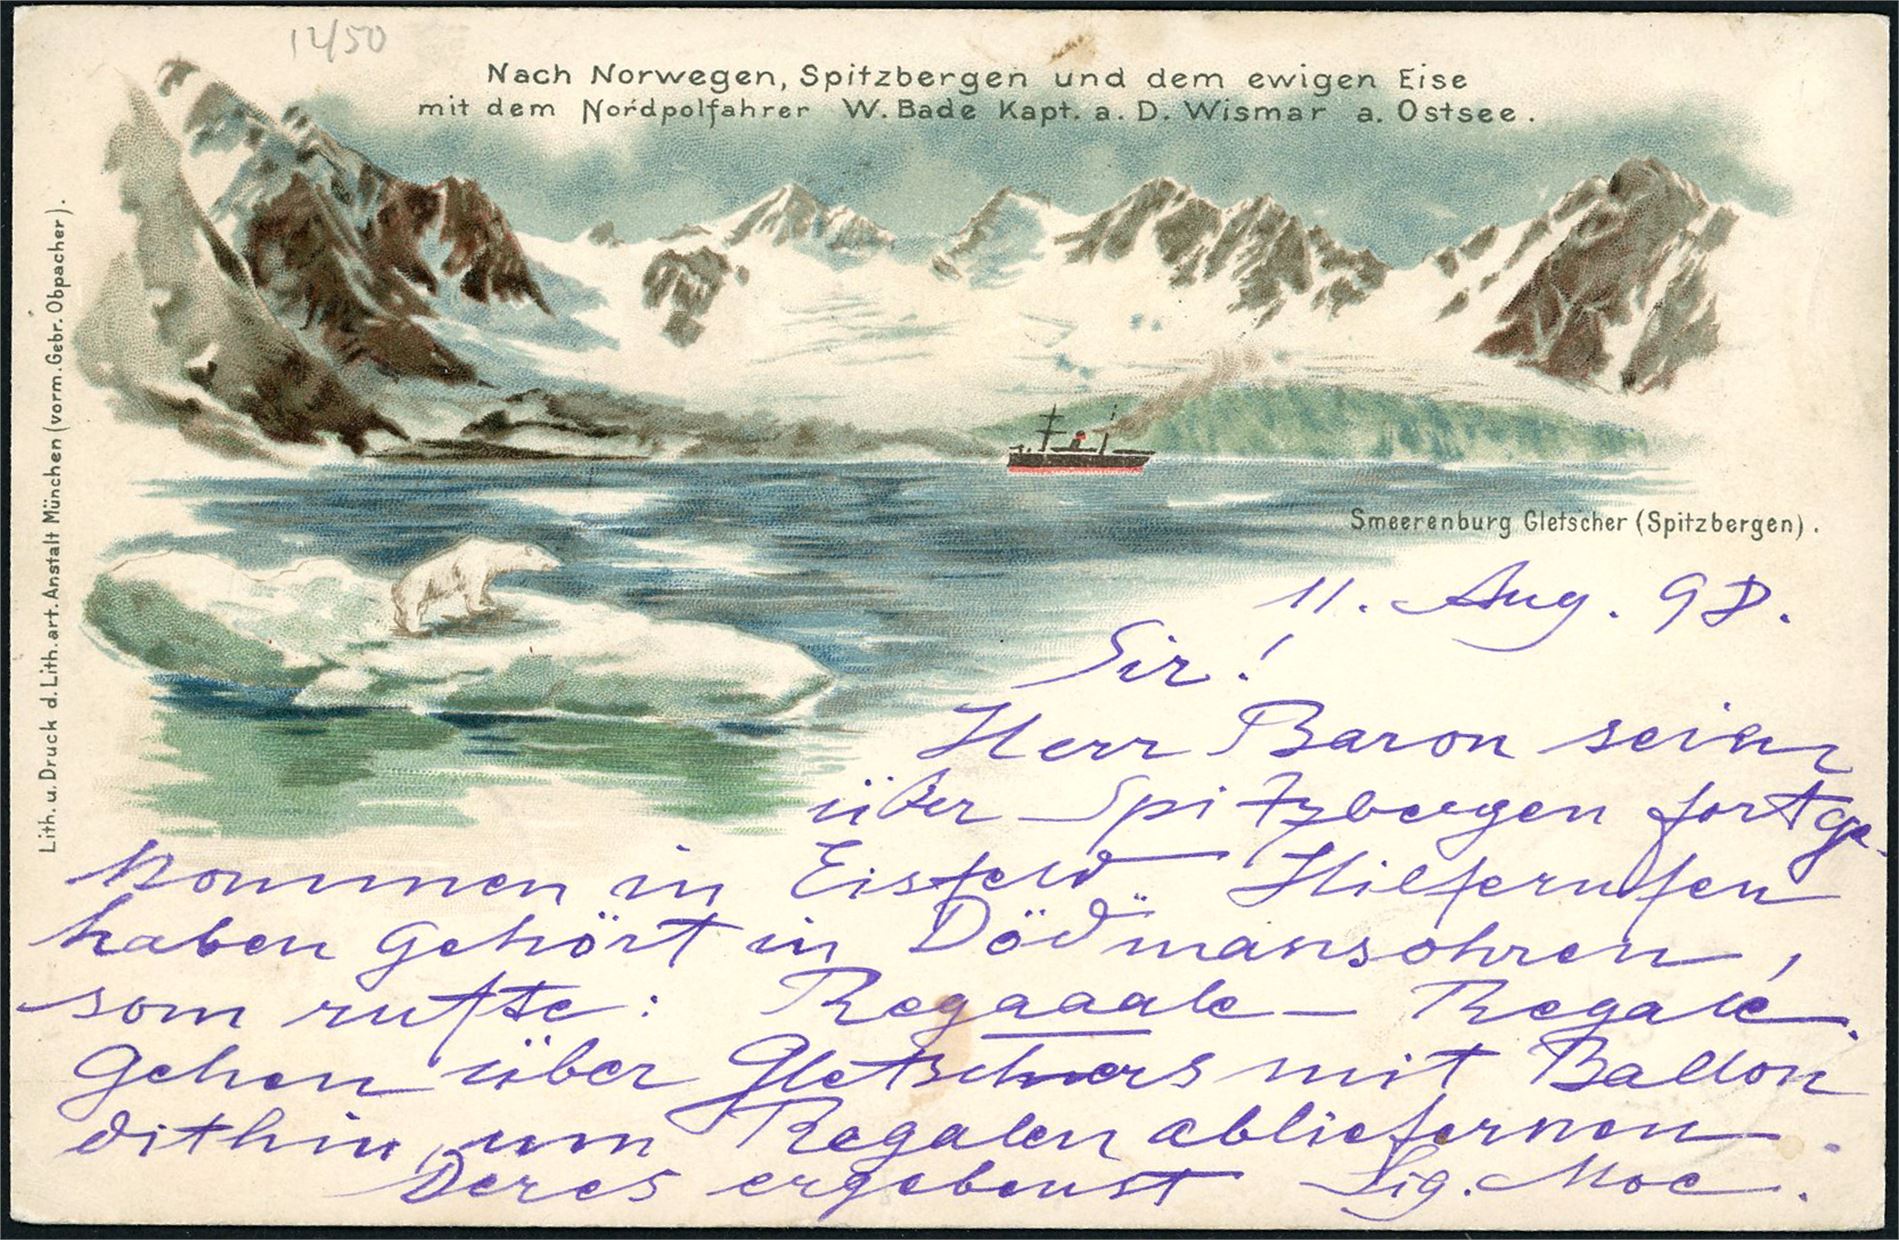 12/50
Nach Norwegen, Spitzbergen und dem ewigen Eise
mit dem Nordpolfahrer W. Bade Kapt. a. D. Wismar a. Ostsee.
Lith. u. Druck d. Lith. art. Anstalt München (vorm. Gebr. Obpacher).
Smeerenburg Gletscher (Spitzbergen).
11. Aug. 98.
Sir!
Herr Baron seien
über Spitzbergen fortge-
kommen in Eisfeld Hilferufen
haben gehört in Dödmansohren,
som rufte: Regaaale – Regale.
Gehen über Gletschers mit Ballon
dithin, um Regalen abliefernen.
Deres ergebenst Sig. Moe.